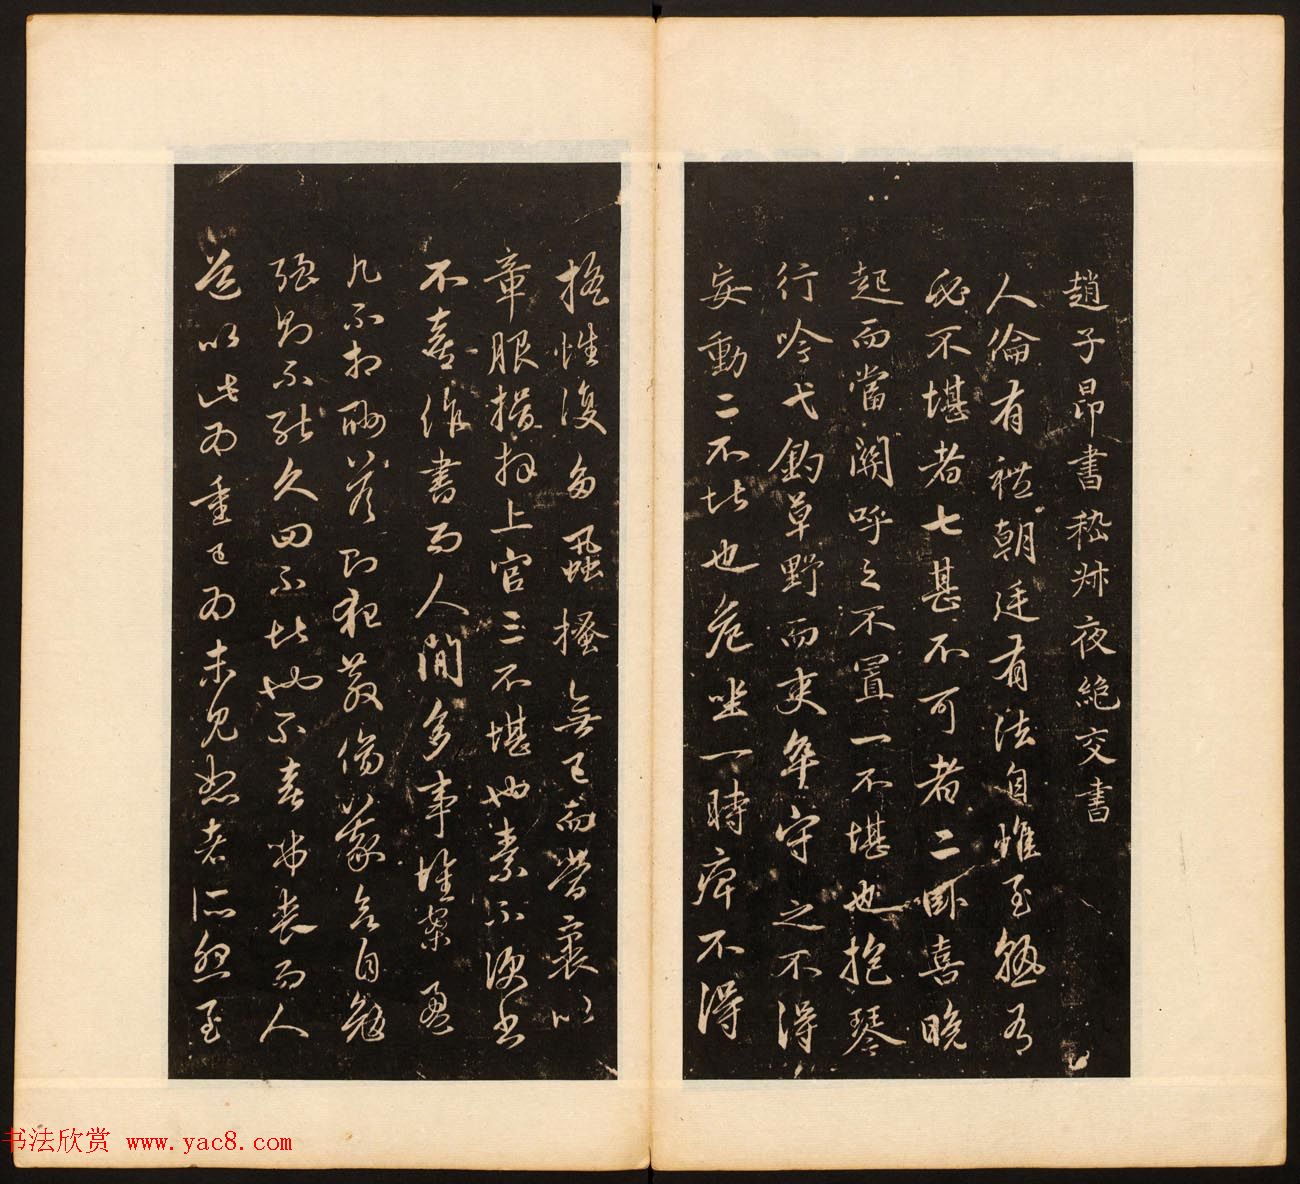 趙子昂書嵇叔夜絕交書
人倫有禮朝廷有法自惟至熟有
必不堪者七甚不可者二臥喜晚
起而當關呼之不置一不堪也抱琴
行吟弋釣草野而吏卒守之不得
妄動二不堪也危坐一時痺不得
搖性復多蝨搔無已而當裹以
章服揖拜上官三不堪也素不便書
不喜作書而人間多事堆案盈
几不相酬答則犯教傷義欲自勉
強則不能久四不堪也不喜弔喪而人
道以此為重己為未見恕者所怨至
书法欣赏 www.yac8.com